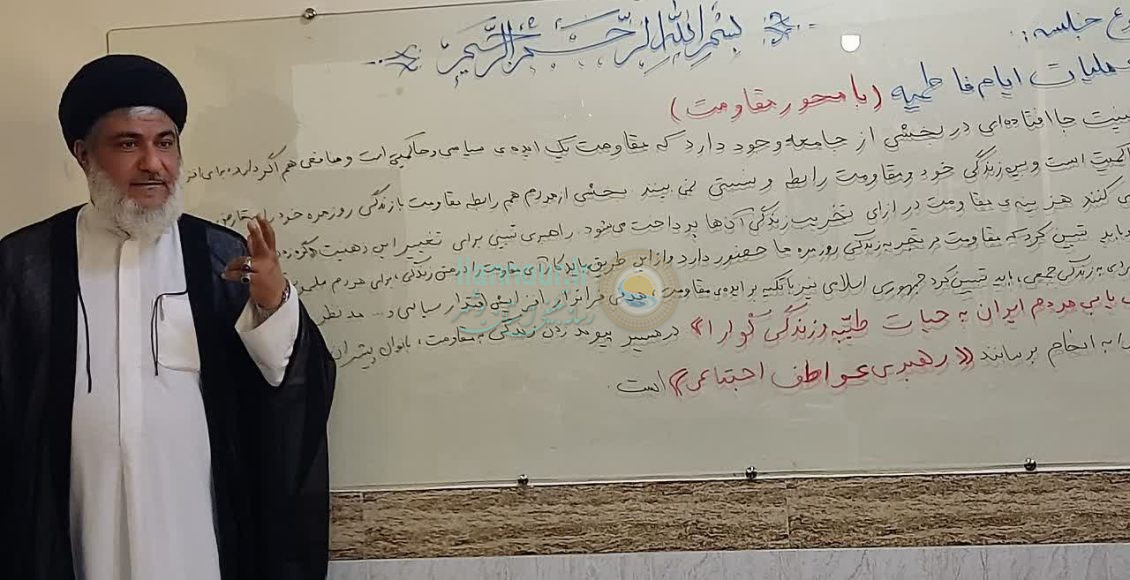 بسم الله الرحمن الرحیم
جلسه:
عملیات ایام فاطمیه (با محور مقاومت)
جا افتاده‌ای در بخشی از جامعه وجود دارد که مقاومت یک ایده‌ی سیاسی و حاکمیتی است و منافعی هم اگر دارد برای
حاکمیت است و بین زندگی خود و مقاومت رابطه و نسبتی نمی‌بیند. بخشی از مردم هم رابطه مقاومت با زندگی روزمره خود را
می‌کنند هزینه‌ی مقاومت در ازای تخریب زندگی آن‌ها پرداخت می‌شود. راهبرد تبیینی برای تغییر این ذهنیت
باید تبیین کرد که مقاومت در تجربه زندگی روزمره ما حضور دارد و از این طریق باید کارآمدی مقاومت را در متن زندگی، برای مردم
زندگی جمعی، باید تبیین کرد جمهوری اسلامی نیز با تکیه بر ایده‌ی مقاومت، هدفی فراتر از افزایش اقتدار سیاسی و... مد نظر
مردم ایران به حیات طیّبه و زندگی گوارا» در مسیر پیوند زدن زندگی به مقاومت، بانوان پیشران
به انجام برسانند «رهبری عواطف اجتماعی» است.